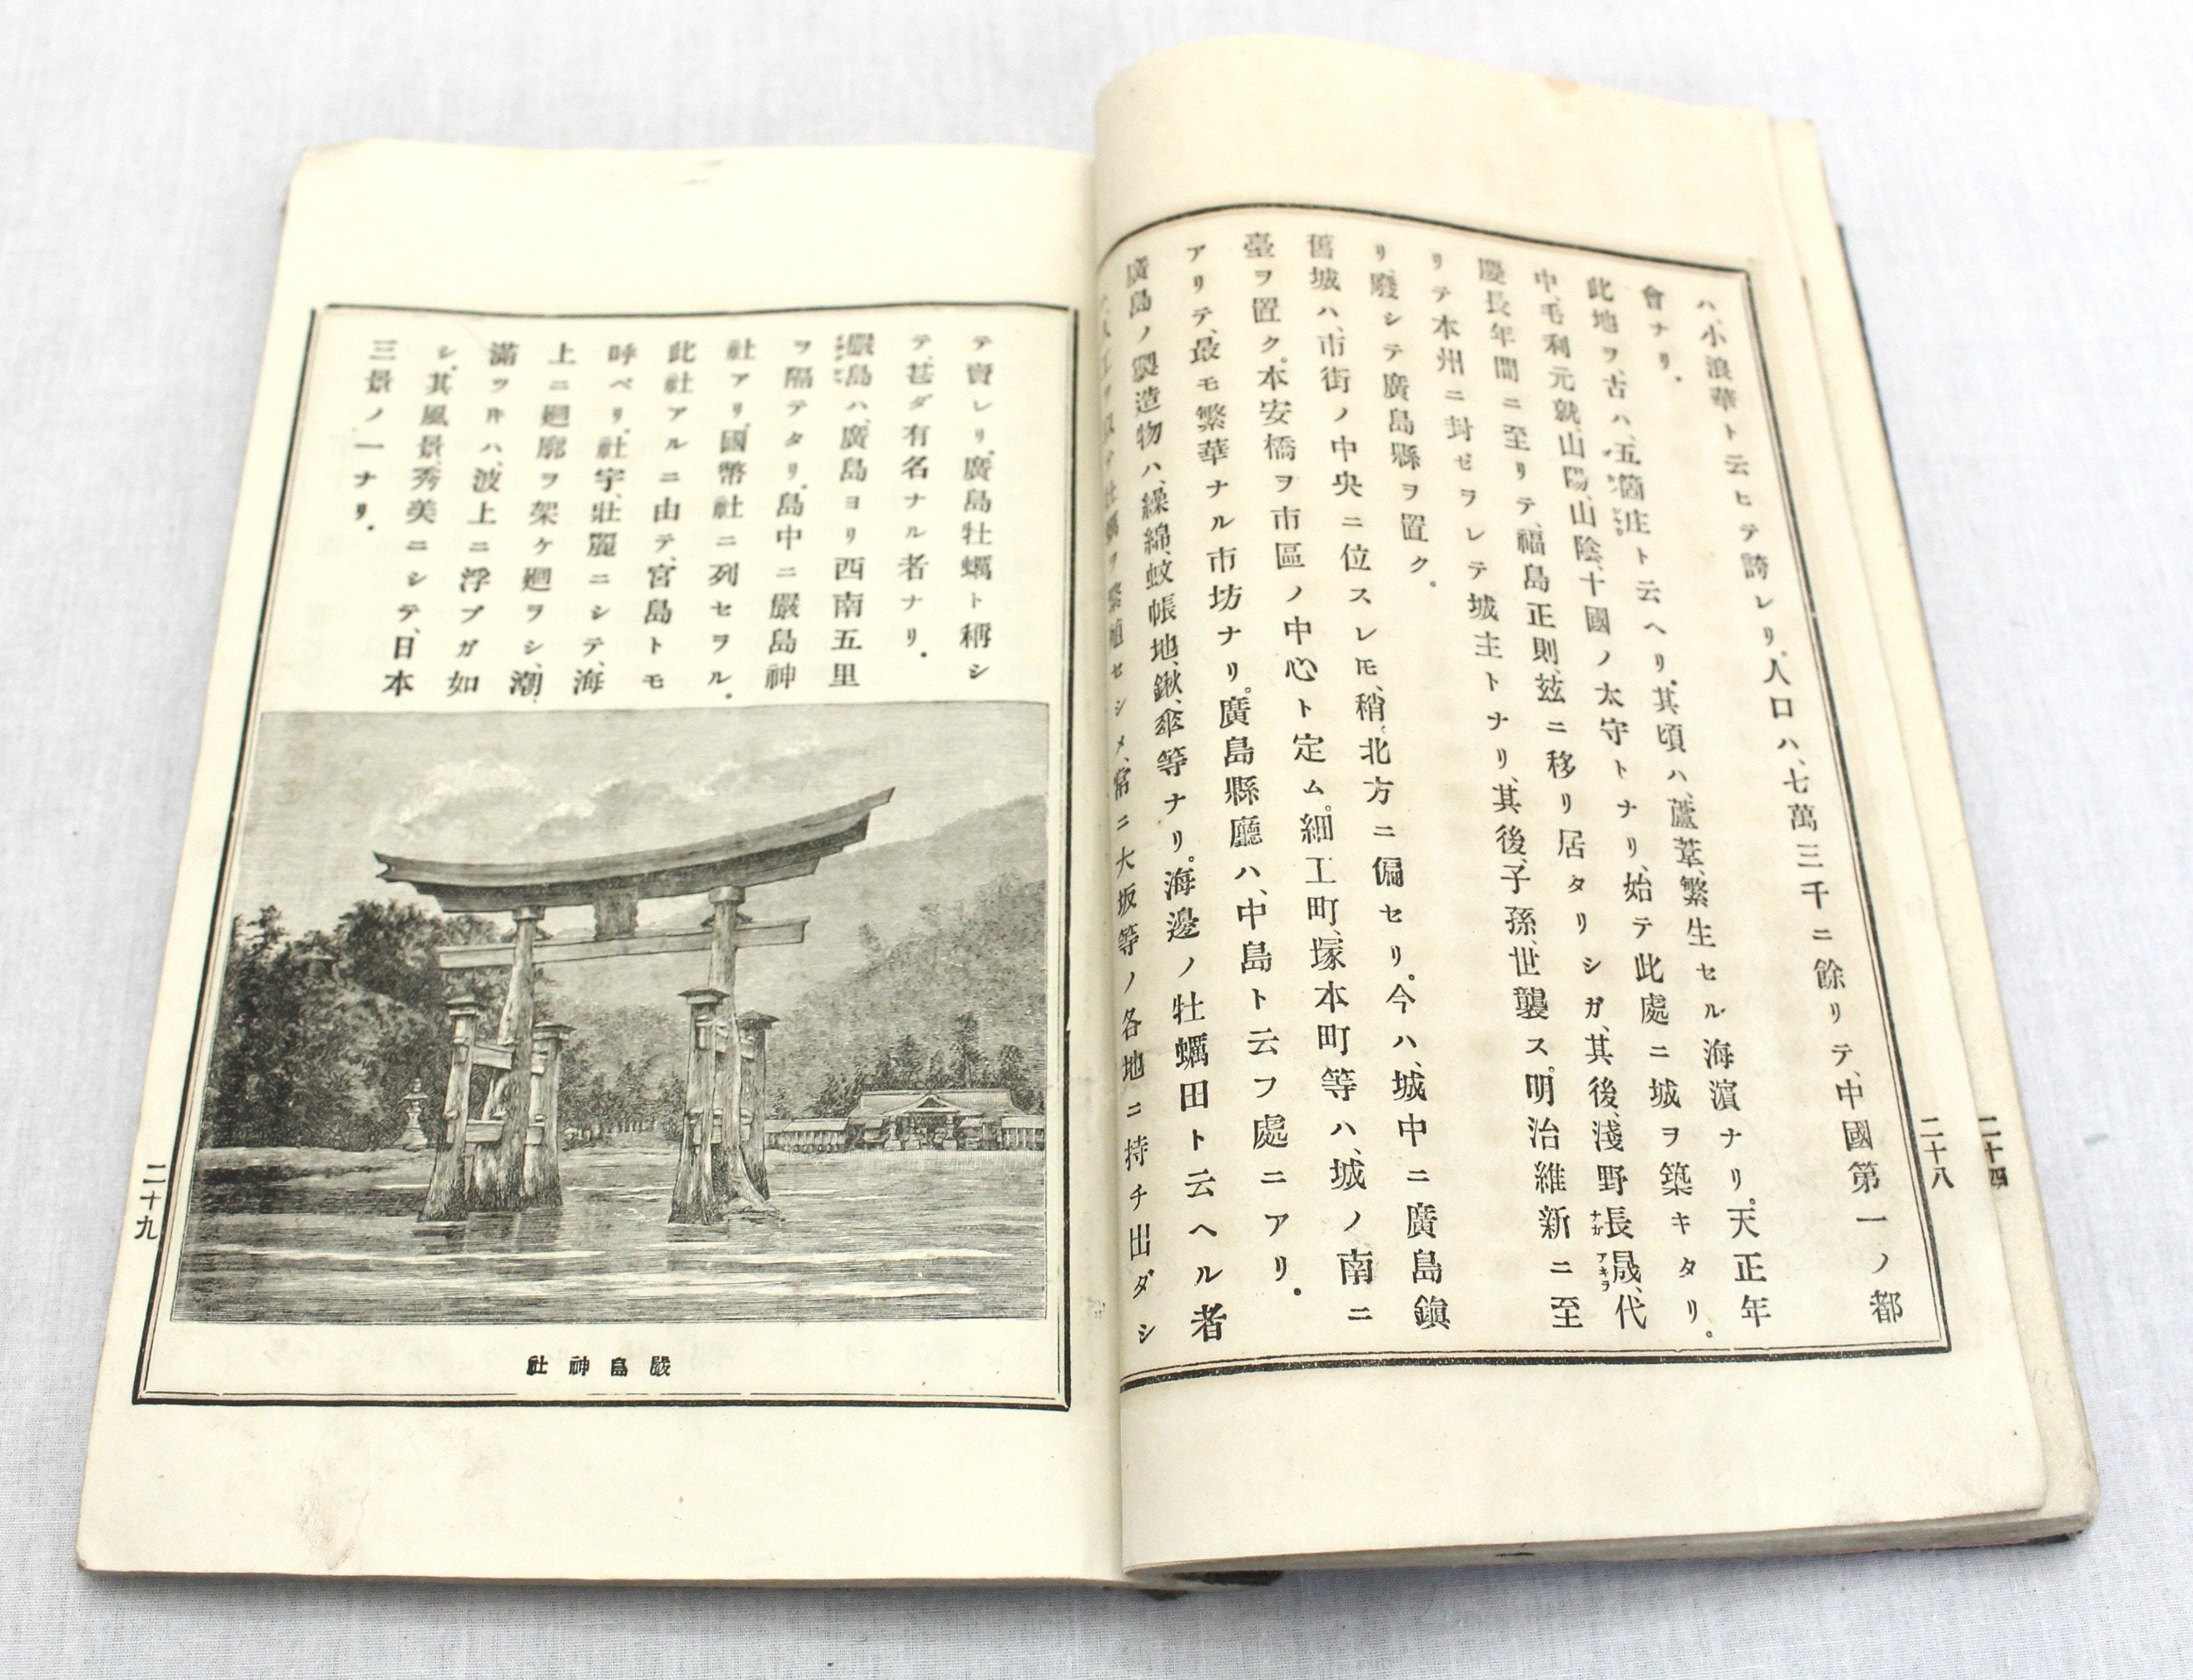 ハ、小浪華ト云ヒテ誇レリ。人口ハ、七萬三千ニ餘リテ、中國第一ノ都
會ナリ。
此地ヲ、古ハ、五箇庄ト云ヘリ。其頃ハ、蘆葦、繁生セル海濵ナリ。天正年
中、毛利元就、山陽、山陰、十國ノ太守トナリ、始テ此處ニ城ヲ築キタリ。
慶長年間ニ至リテ、福島正則、玆ニ移リ居タリシガ、其後、淺野長晟、代
リテ本州ニ封ゼヲレテ城主トナリ、其後、子孫、世襲ス。明治維新ニ至
リ、廢シテ廣島縣ヲ置ク。
舊城ハ、市街ノ中央ニ位スレ𪜈、稍、北方ニ偏セリ。今ハ、城中ニ廣島鎭
臺ヲ置ク。本安橋ヲ市區ノ中心ト定ム。細工町、塚本町等ハ、城ノ南ニ
アリテ、最モ繁華ナル市坊ナリ。廣島縣廳ハ、中島ト云フ處ニアリ。
廣島ノ製造物ハ、繰綿、蚊帳地、鍬、傘等ナリ。海邊ノ牡蠣田ト云ヘル者
牡蠣ヲ繁殖セシメ、常ニ大坂等ノ各地ニ持チ出ダシ
二十八
二十四
テ賣レリ。廣島牡蠣ト稱シ
テ、甚ダ有名ナル者ナリ。
嚴島ハ、廣島ヨリ西南五里
ヲ隔テタリ。島中ニ嚴島神
社アリ。國幣社ニ列セヲル。
此社アルニ由テ、宮島トモ
呼ベリ。社宇、壯麗ニシテ、海
上ニ廻廊ヲ架ケ廻ヲシ、潮、
滿ヲ𪜈ハ、波上ニ浮ブガ如
シ。其風景、秀美ニシテ、日本
三景ノ一ナリ。
嚴島神社
二十九